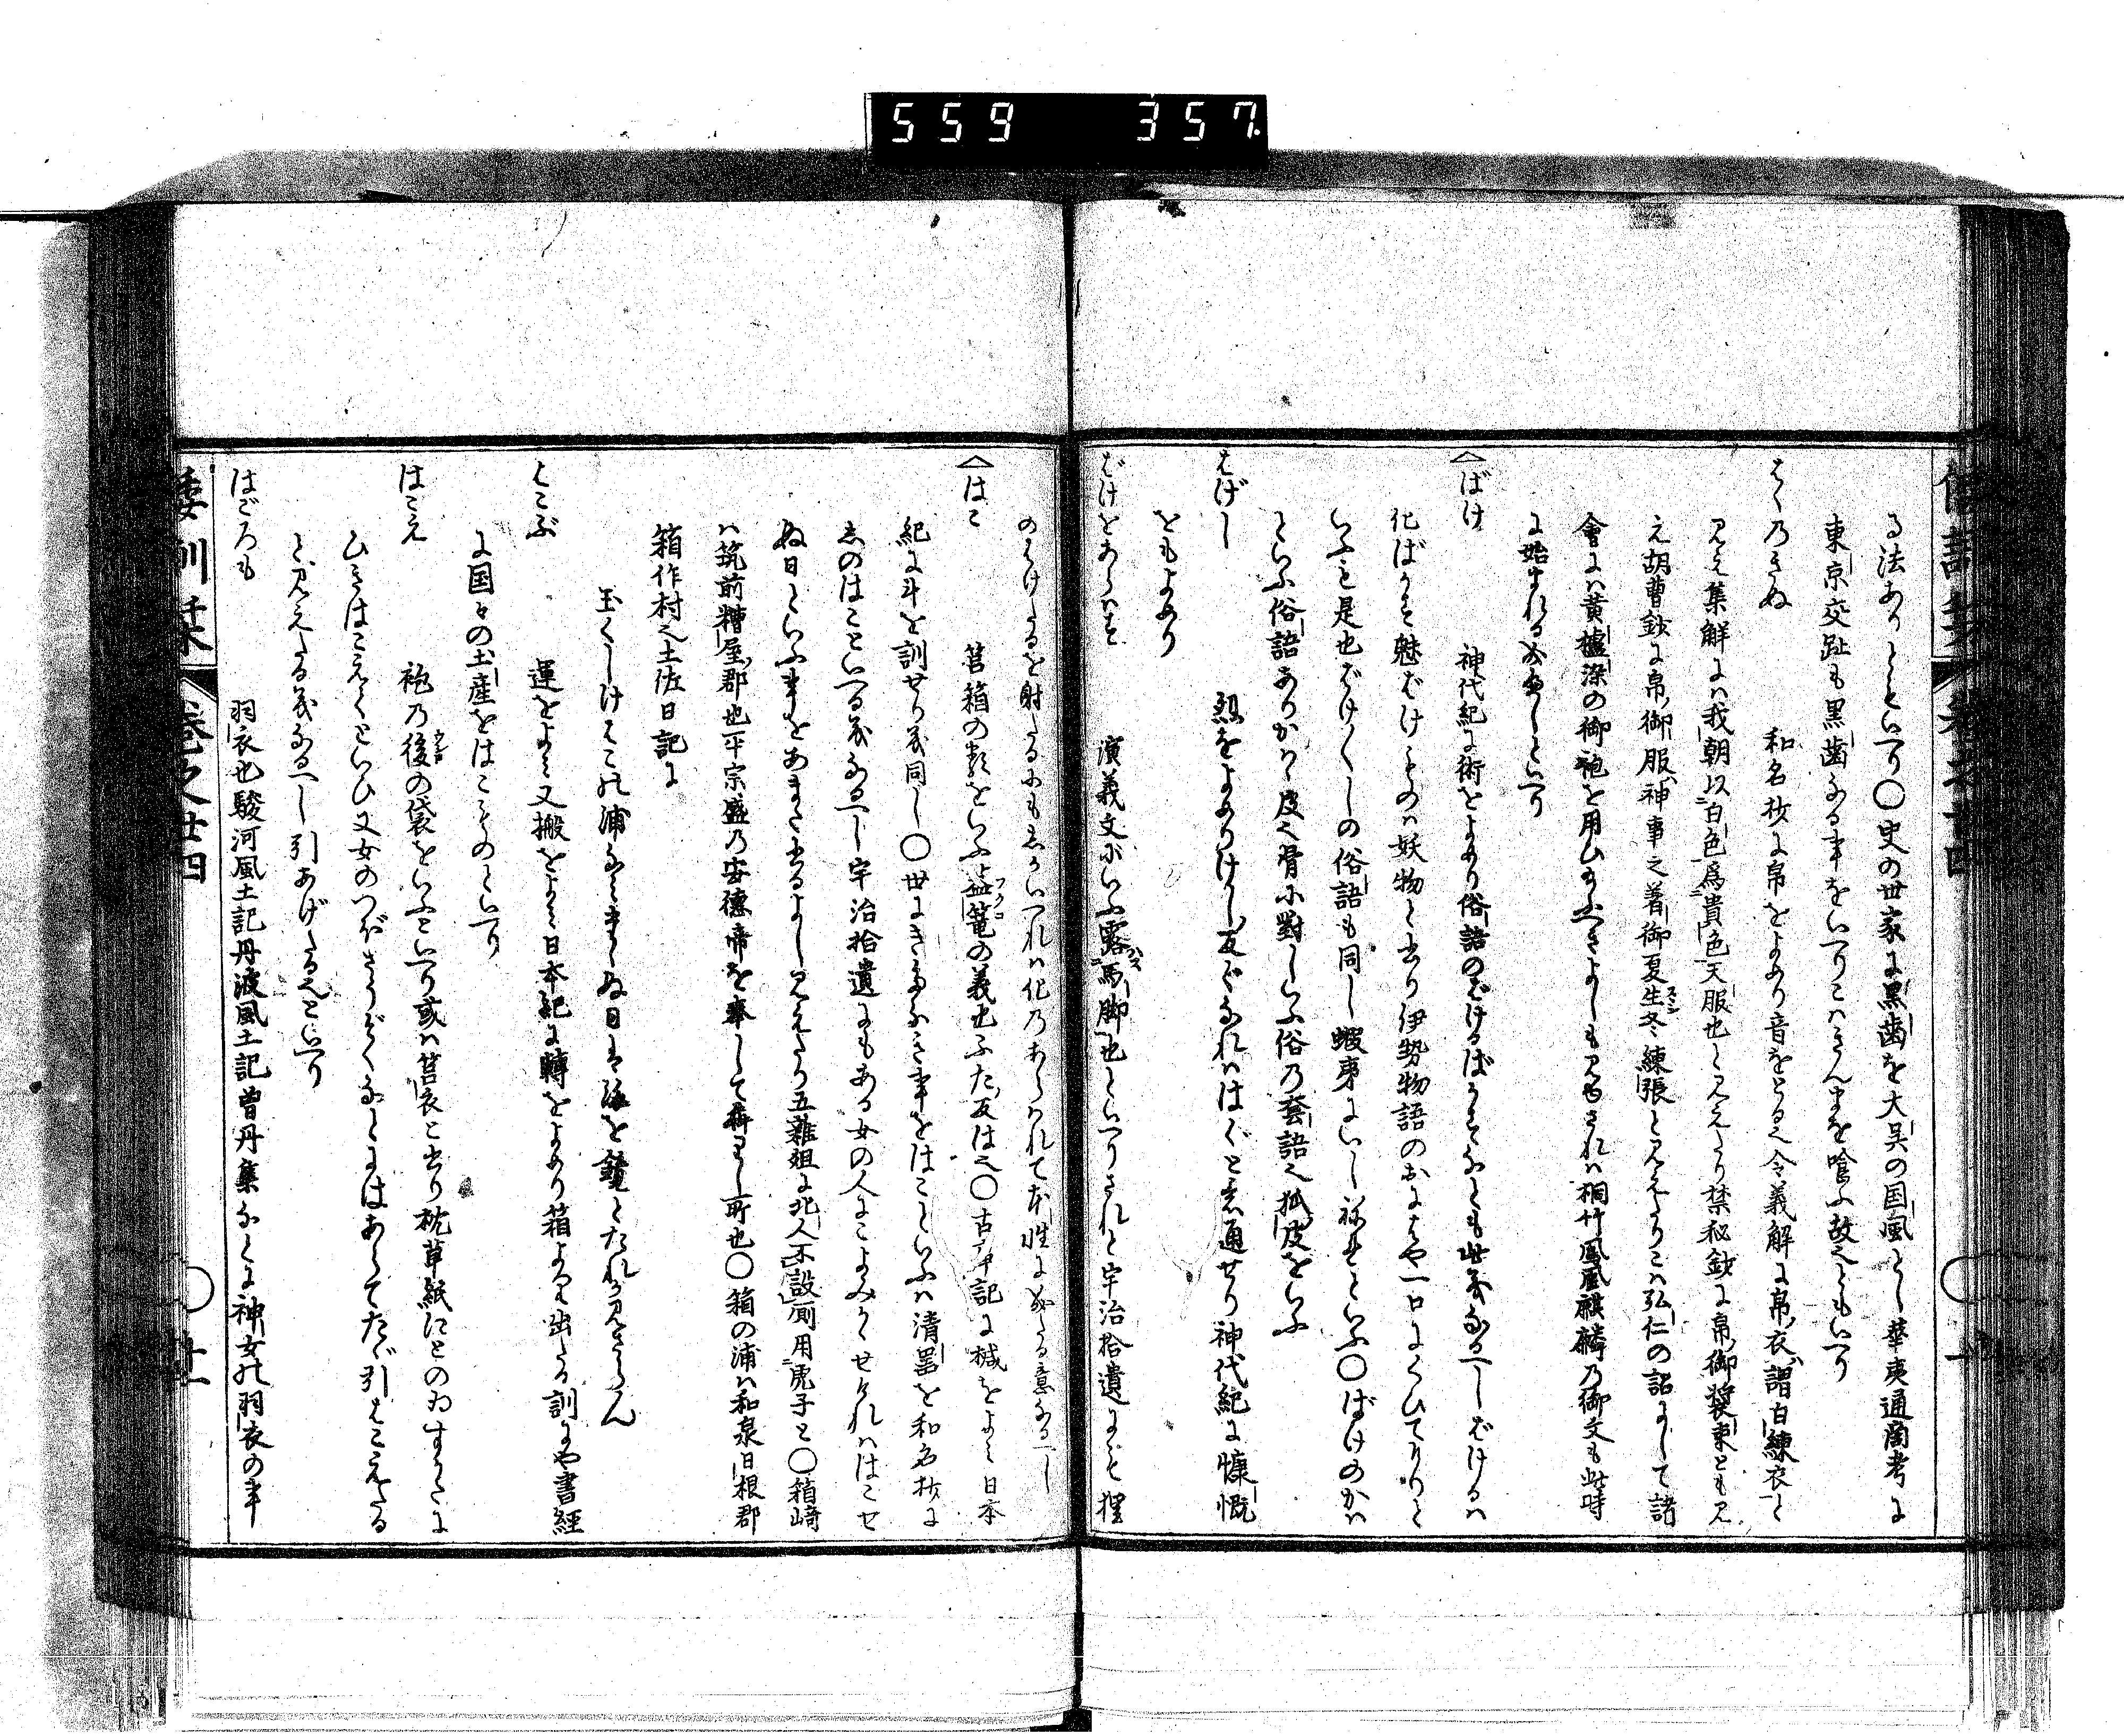 559 357
る法ありといへり〇史の世家に黒歯を大呉の国風とし華夷通商考に
東京交趾も黒歯なる事をいへりこはきんまを喰ふ故ともいへり
はくのきぬ 和名抄に帛をよめり音をとる也令義解に帛衣謂白練衣と
見え集解には我朝以白色為貴色天服也と見えたり禁秘鈔に帛御装束とも見
え胡曹鈔に帛御服神事之着御夏生冬練張と見えたりこは弘仁の詔にして諸
會には黄櫨染の御袍を用ひ給ふへきよしも見ゆされは桐竹鳳凰麒麟乃御文も此時
に始まれるなるへしといへり
ばけ 神代紀に術をよめり俗語のばけるばかすなとも此義なるへしばけるは
化ばかすは魅ばけものは妖物と書り伊勢物語のおにはや一口にくひてけりと
いふも是也ばけかくしの俗語も同し蝦夷にいしねせといふ〇ばけのかは
といふ俗語ありかは皮也骨に對しいふ俗乃套語也狐皮をいふ
はげし 烈をよめりけし反ぎなれははぐと意通せり神代紀に慷慨
をもよめり
ばけをあらはす 演義文にいふ露馬脚也といへりされと宇治拾遺にも狸
のばけたるを射たるにもしかいへれは化乃あらはれて本性になりたる意なるへし
はこ 筥箱の類をいふ盖篭の義也ふた反は也〇古事記に椷をよみ日本
紀に斗を訓せり義同し〇世にきたなき事をはこといふは清噐を和名抄に
しのはこといへる義なるへし宇治拾遺にもある女の人にこよみかゝせけれははこせ
ぬ日といふ事をあまた書るよし見えたり五雜俎に北人不設厠用虎子と〇箱﨑
は筑前糟屋郡也平宗盛乃安德帝を奉して奔りし所也〇箱の浦は和泉日根郡
箱作村也土佐日記に
玉くしけはこの浦なみたゝぬ日は海を鏡とたれか見さらん
はこぶ 運をよみ又搬をよみ日本紀に轉をよめり箱より出たる訓にや書経
に国々の土産をはこふものといへり
はこえ 袍乃後の袋をいふといへり或は筥衣と書り枕草紙にとのゐすかたに
ひきはこえてといひ又女のつぼさうぞくなとにはあらてたゞ引はこえたる
と見えたる義なるへし引あげたる也といへり
はごろも 羽衣也駿河風土記丹後風土記曽丹集なとに神女の羽衣の事
倭訓栞 巻之廿四